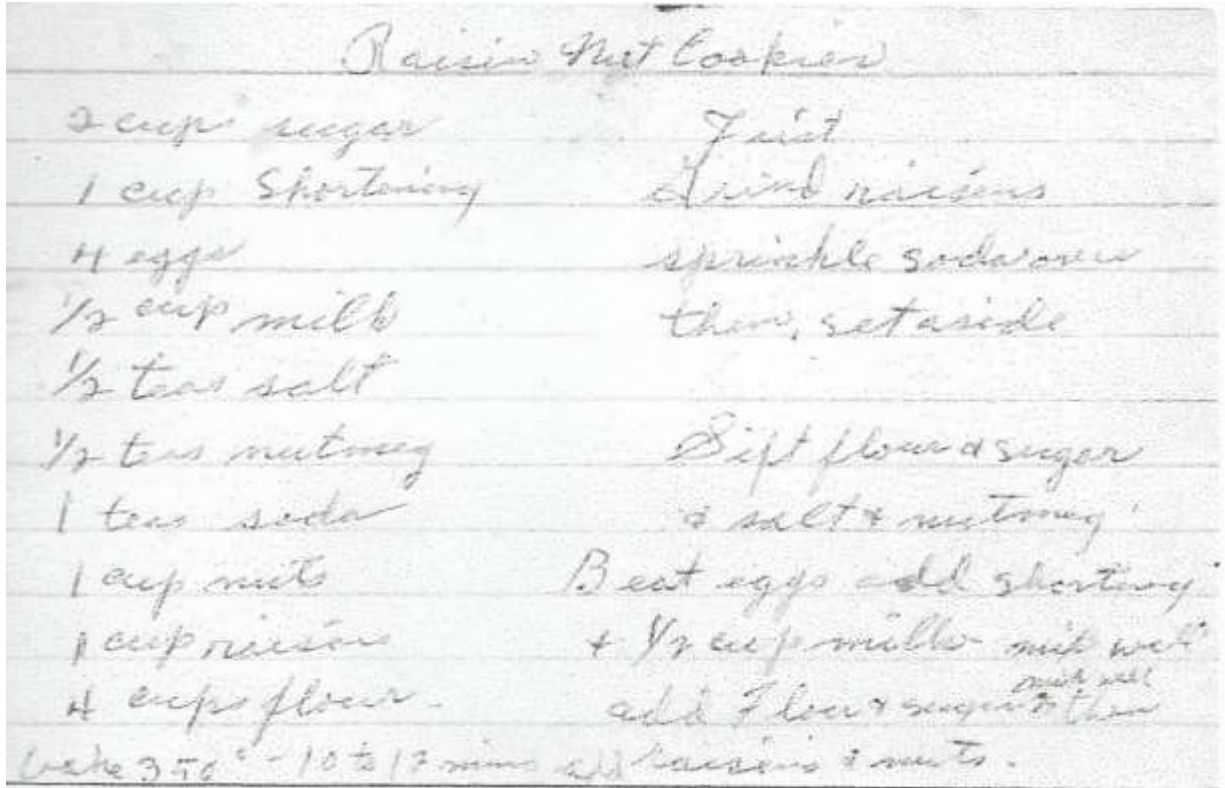 Raisin Nut Cookies
2 cups sugar
1 cup Shortening
4 eggs
1/2 cup milk
1/2 teas salt
1/2 teas nutmeg
1 teas soda
1 cup nuts
1 cup raisins
4 cups flour
First
Grind raisens
sprinkle soda over
them, set aside
Sift flour & sugar
& salt & nutmeg
Beat eggs add shortning
+ 1/2 cup milk mix well
mix well
add Flour & sugar then
bake 350° - 10 to 12 mins add raisins & nuts.